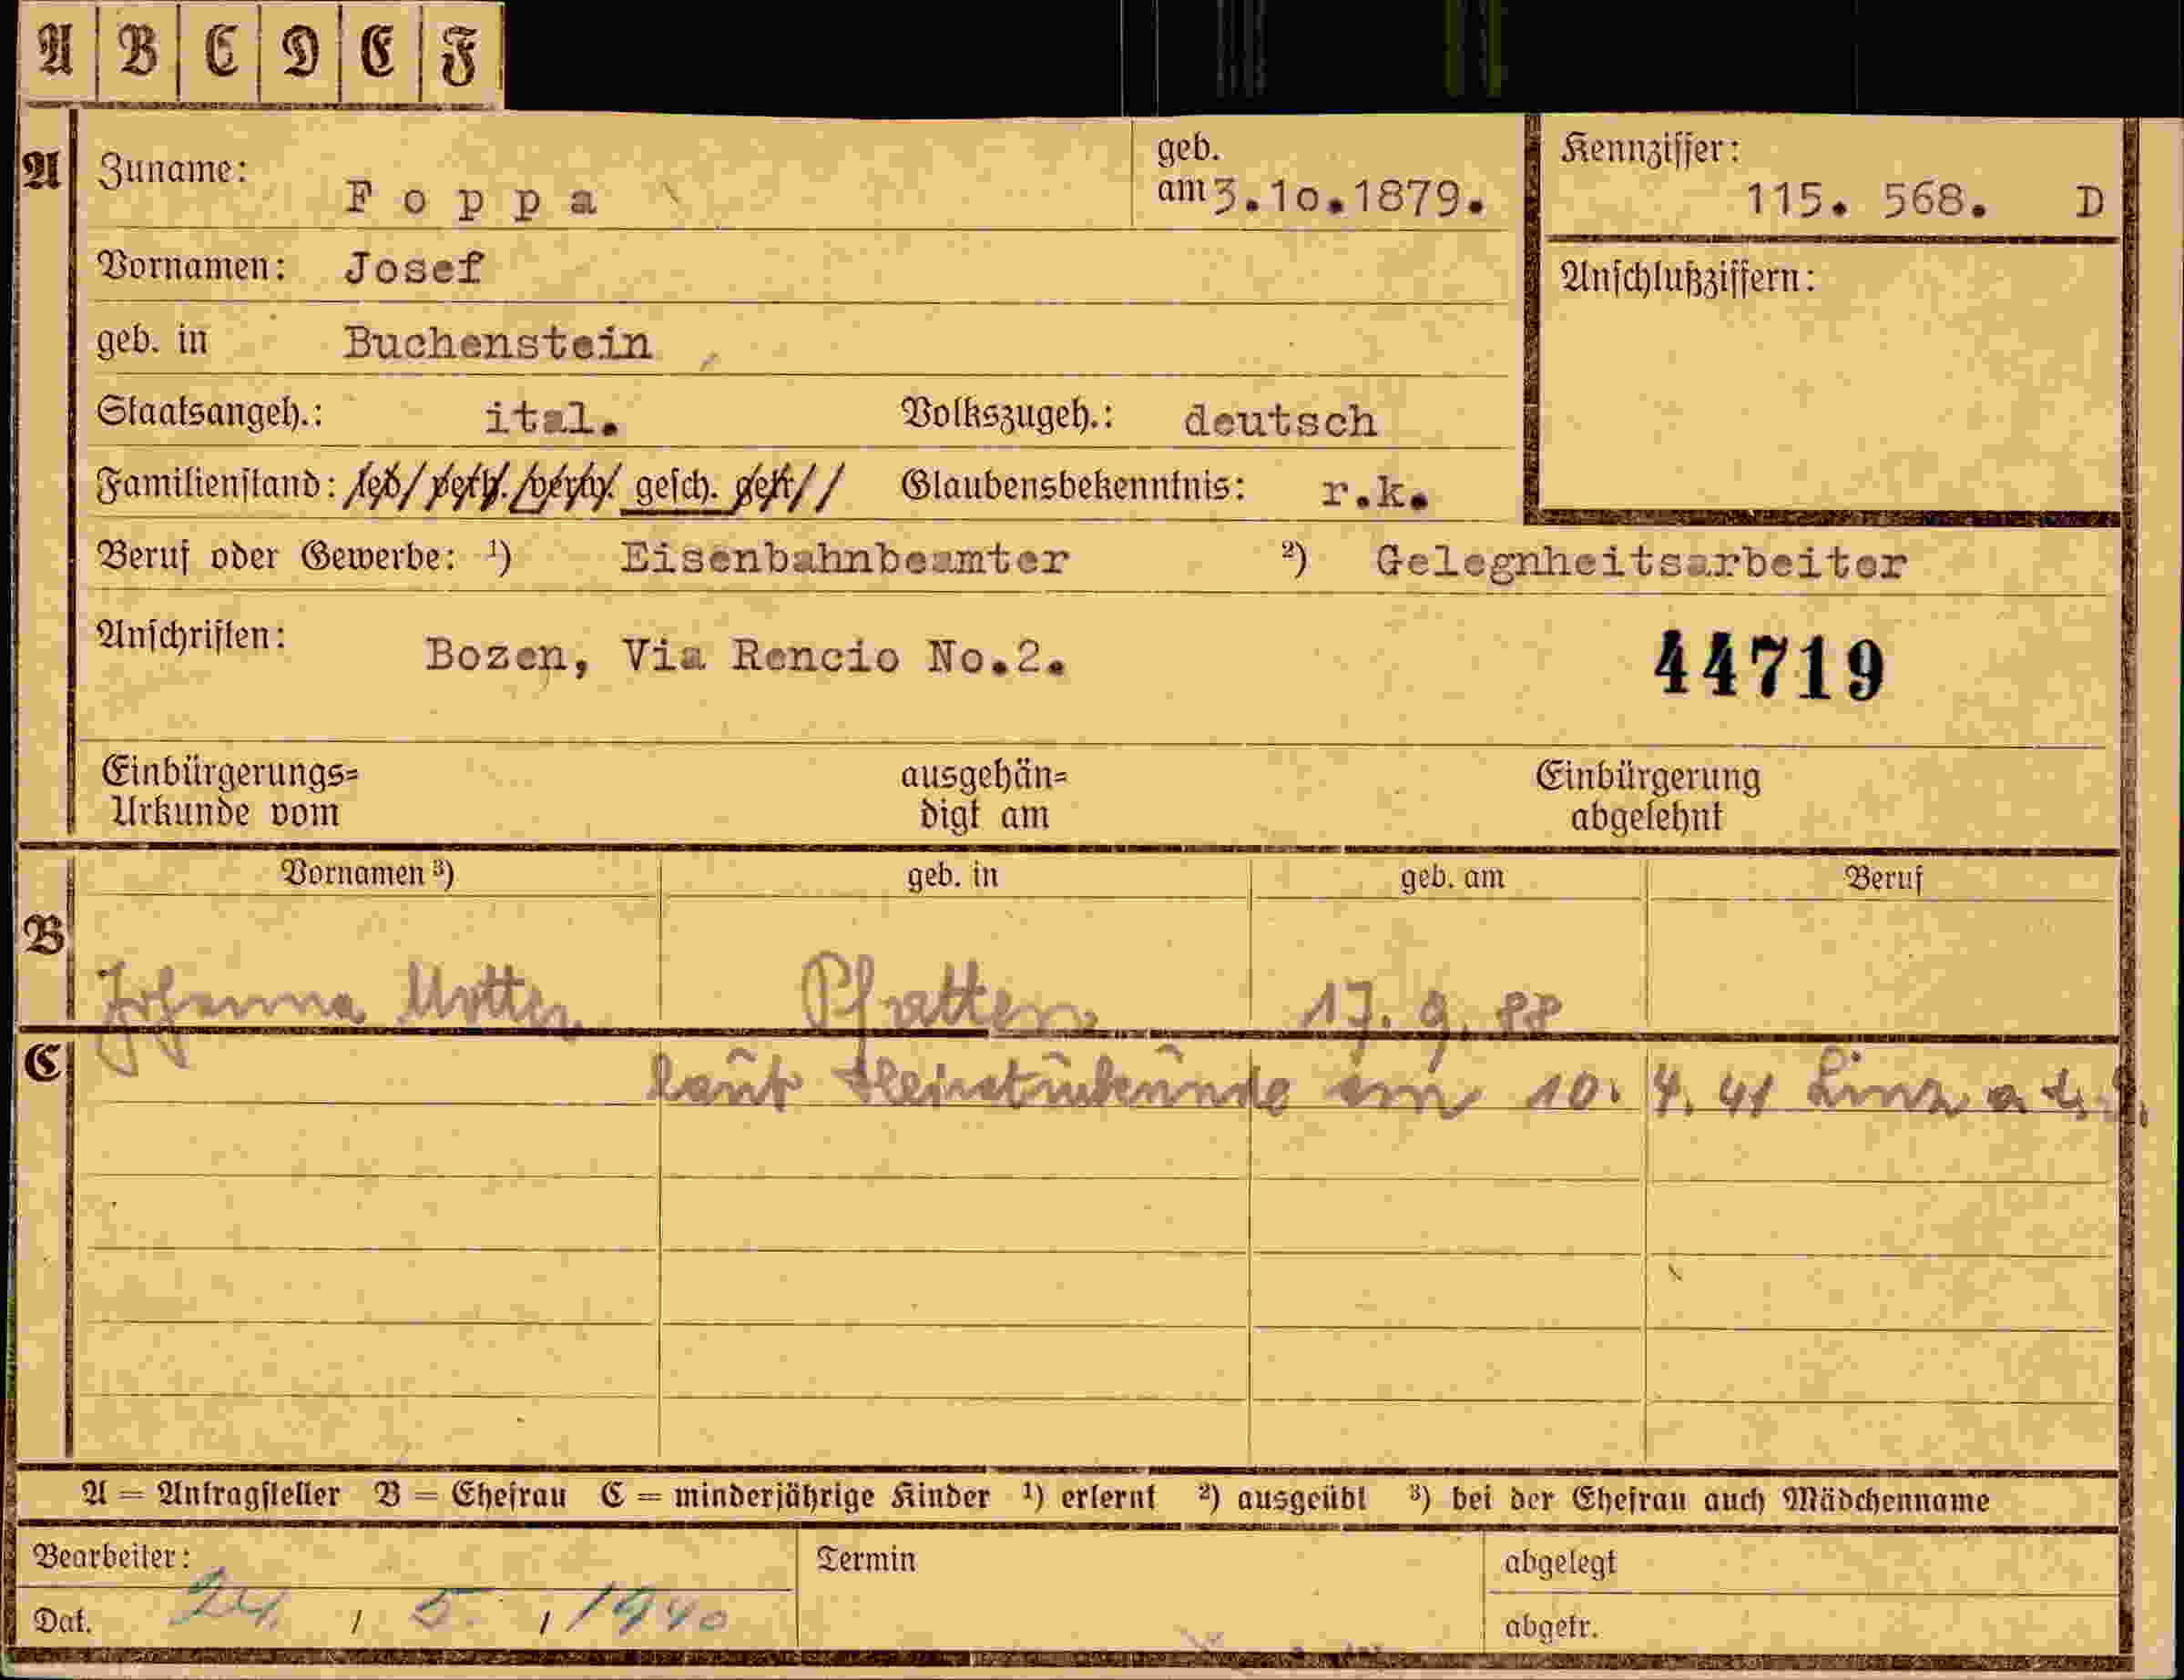 A B C D E F
A Zuname: Foppa geb. am 3.10.1879. Kennziffer: 115. 568. D
Vornamen: Josef Anschlußziffern:
geb. in Buchenstein
Staatsangeh.: ital. Volkszugeh.: deutsch
Familienstand: led. verh. verw. gesch. getr. Glaubensbekenntnis: r.k.
Beruf oder Gewerbe: ¹) Eisenbahnbeamter ²) Gelegnheitsarbeiter
Anschriften: Bozen, Via Rencio No.2. 44719
Einbürgerungs= ausgehän= Einbürgerung
Urkunde vom digt am abgelehnt
Vornamen ³) geb. in geb. am Beruf
B Johanna Pfatten 17. 9. 88
C laut Heiratsurkunde am 10. 4. 41 Linz a. d.
A = Antragsteller B = Ehefrau C = minderjährige Kinder ¹) erlernt ²) ausgeübt ³) bei der Ehefrau auch Mädchenname
Bearbeiter: Termin abgelegt
Dat. 24. / 5. / 1940 abgetr.